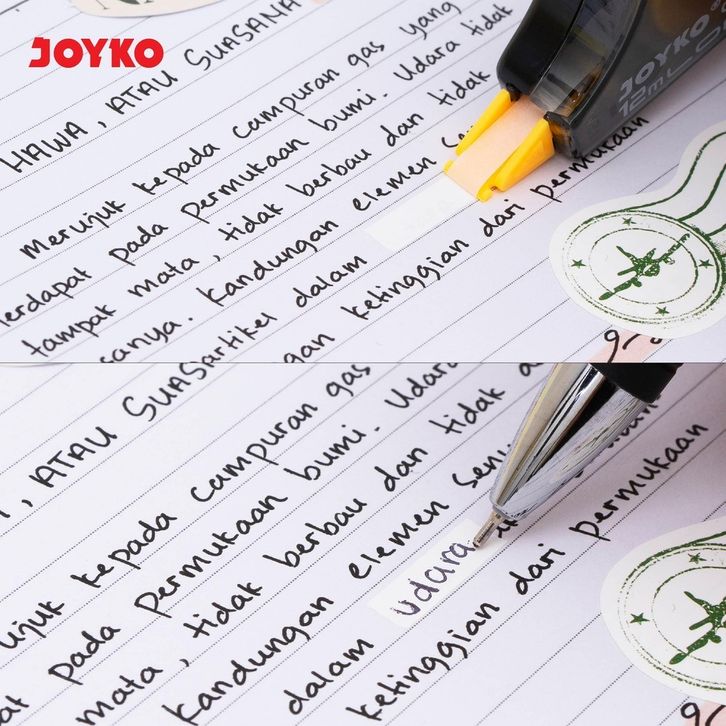 JOYKO
HAWA, ATAU SUASANA
merujuk kepada campuran gas yang
terdapat pada permukaan bumi. Udara tidak
tampak mata, tidak berbau dan tidak
sanya. Kandungan elemen
artikel dalam
gan ketinggian dari permukaan
JOYKO
12m
, ATAU SUAS
ujuk kepada campuran gas
pada permukaan bumi. Udara
mata, tidak berbau dan tidak
kandungan elemen
dalam udara
ketinggian dari permukaan